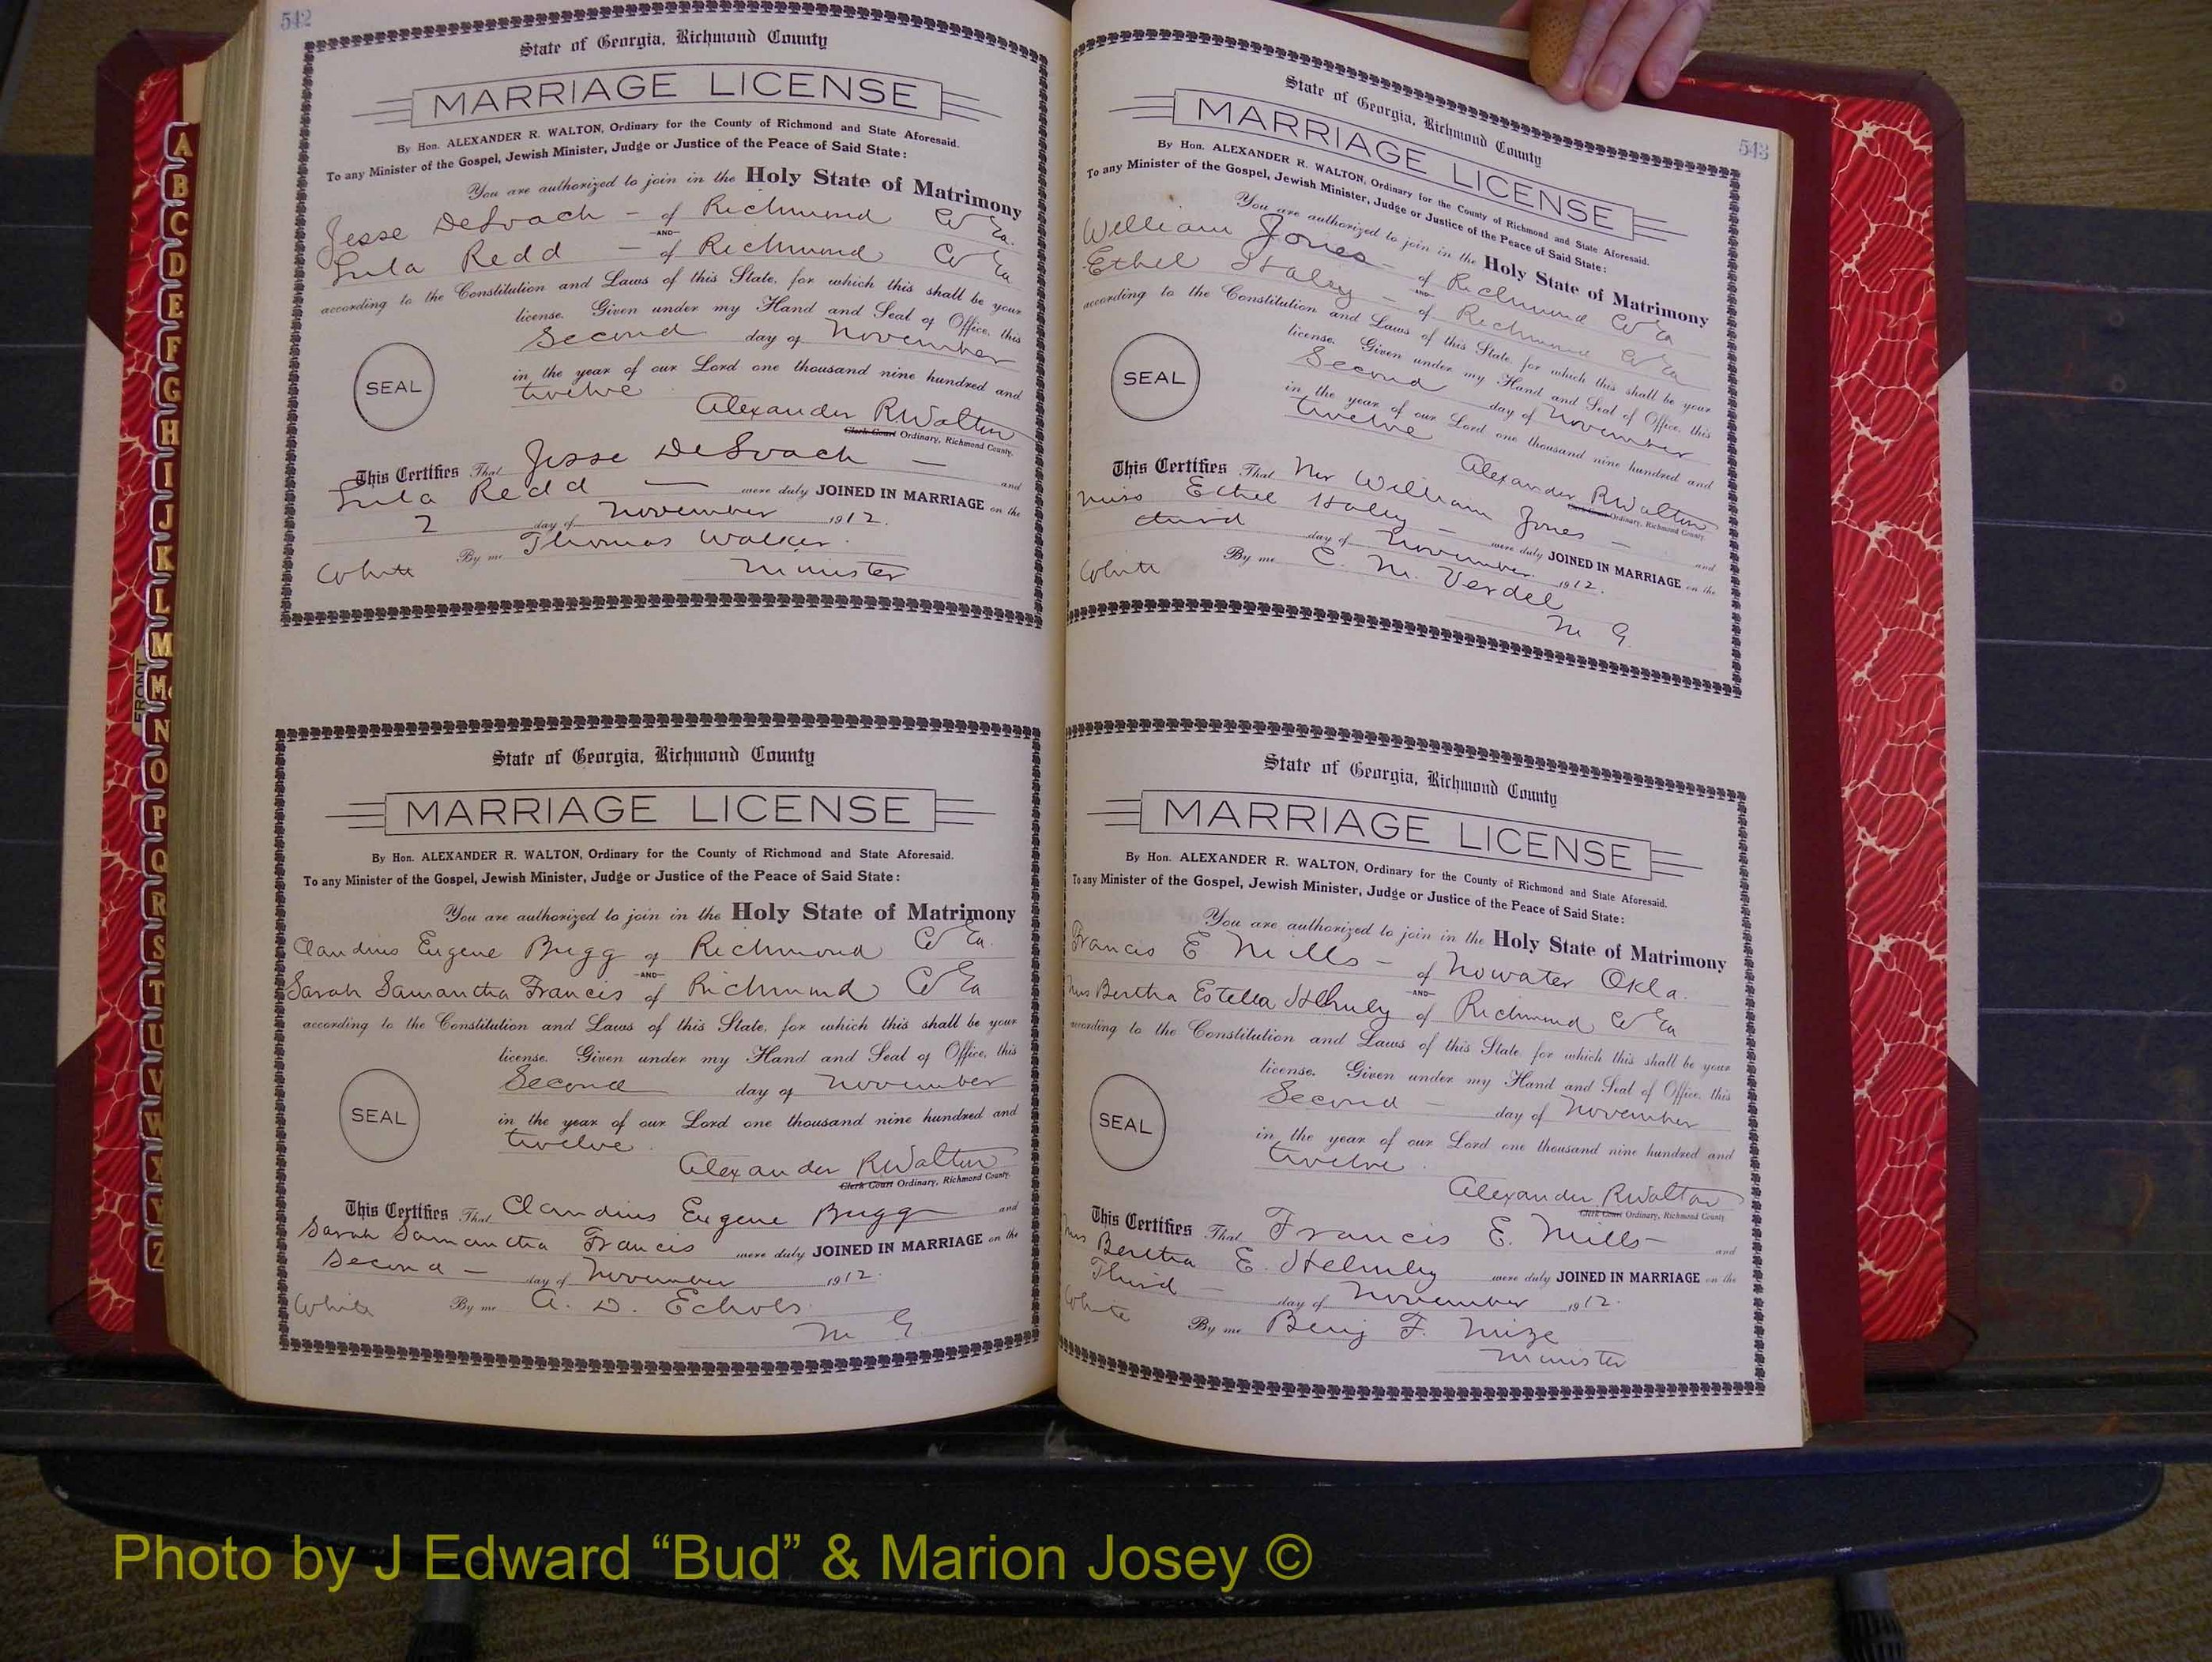 542
State of Georgia, Richmond County
MARRIAGE LICENSE
By Hon. ALEXANDER R. WALTON, Ordinary for the County of Richmond and State Aforesaid.
To any Minister of the Gospel, Jewish Minister, Judge or Justice of the Peace of Said State:
You are authorized to join in the Holy State of Matrimony
Jesse DeLoach - of Richmond Co Ga.
-AND-
Lula Redd - of Richmond Co Ga
according to the Constitution and Laws of this State, for which this shall be your
license. Given under my Hand and Seal of Office, this
Second day of November
in the year of our Lord one thousand nine hundred and
twelve
SEAL
Alexander R Walton
Clerk Court Ordinary, Richmond County.
This Certifies That Jesse DeLoach - and
Lula Redd - were duly JOINED IN MARRIAGE on the
2 day of November 1912.
White By me Thomas Walker.
Minister
State of Georgia, Richmond County
MARRIAGE LICENSE
By Hon. ALEXANDER R. WALTON, Ordinary for the County of Richmond and State Aforesaid.
To any Minister of the Gospel, Jewish Minister, Judge or Justice of the Peace of Said State:
You are authorized to join in the Holy State of Matrimony
Claudius Eugene Bugg of Richmond Co Ga.
-AND-
Sarah Samantha Francis of Richmond Co Ga
according to the Constitution and Laws of this State, for which this shall be your
license. Given under my Hand and Seal of Office, this
Second day of November
in the year of our Lord one thousand nine hundred and
twelve.
SEAL
Alexander R Walton
Clerk Court Ordinary, Richmond County.
This Certifies That Claudius Eugene Bugg and
Sarah Samantha Francis were duly JOINED IN MARRIAGE on the
Second - day of November 1912.
White By me A. D. Echols.
M G.
543
State of Georgia, Richmond County
MARRIAGE LICENSE
By Hon. ALEXANDER R. WALTON, Ordinary for the County of Richmond and State Aforesaid.
To any Minister of the Gospel, Jewish Minister, Judge or Justice of the Peace of Said State:
You are authorized to join in the Holy State of Matrimony
William Jones - of Richmond Co Ga
-AND-
Ethel - of Richmond Co Ga
according to the Constitution and Laws of this State, for which this shall be your
license. Given under my Hand and Seal of Office, this
Second day of November
in the year of our Lord one thousand nine hundred and
twelve
SEAL
Alexander R Walton
Clerk Court Ordinary, Richmond County.
This Certifies That Mr William Jones - and
Miss Ethel - were duly JOINED IN MARRIAGE on the
third day of November 1912.
White By me C. M. Verdel
M G.
State of Georgia, Richmond County
MARRIAGE LICENSE
By Hon. ALEXANDER R. WALTON, Ordinary for the County of Richmond and State Aforesaid.
To any Minister of the Gospel, Jewish Minister, Judge or Justice of the Peace of Said State:
You are authorized to join in the Holy State of Matrimony
Francis E Mills - of Nowater Okla.
-AND-
Bertha Estella of Richmond Co Ga
according to the Constitution and Laws of this State, for which this shall be your
license. Given under my Hand and Seal of Office, this
Second - day of November
in the year of our Lord one thousand nine hundred and
twelve.
SEAL
Alexander R Walton
Clerk Court Ordinary, Richmond County.
This Certifies That Francis E. Mills - and
Bertha E. Helmly were duly JOINED IN MARRIAGE on the
Third - day of November 1912.
White By me Benj F. Mize
Minister
A
B
C
D
E
F
G
H
I
J
K
L
M
Mc
N
O
P
Q
R
S
T
U
V
W
X
Y
Z
FRONT
Photo by J Edward “Bud” & Marion Josey ©